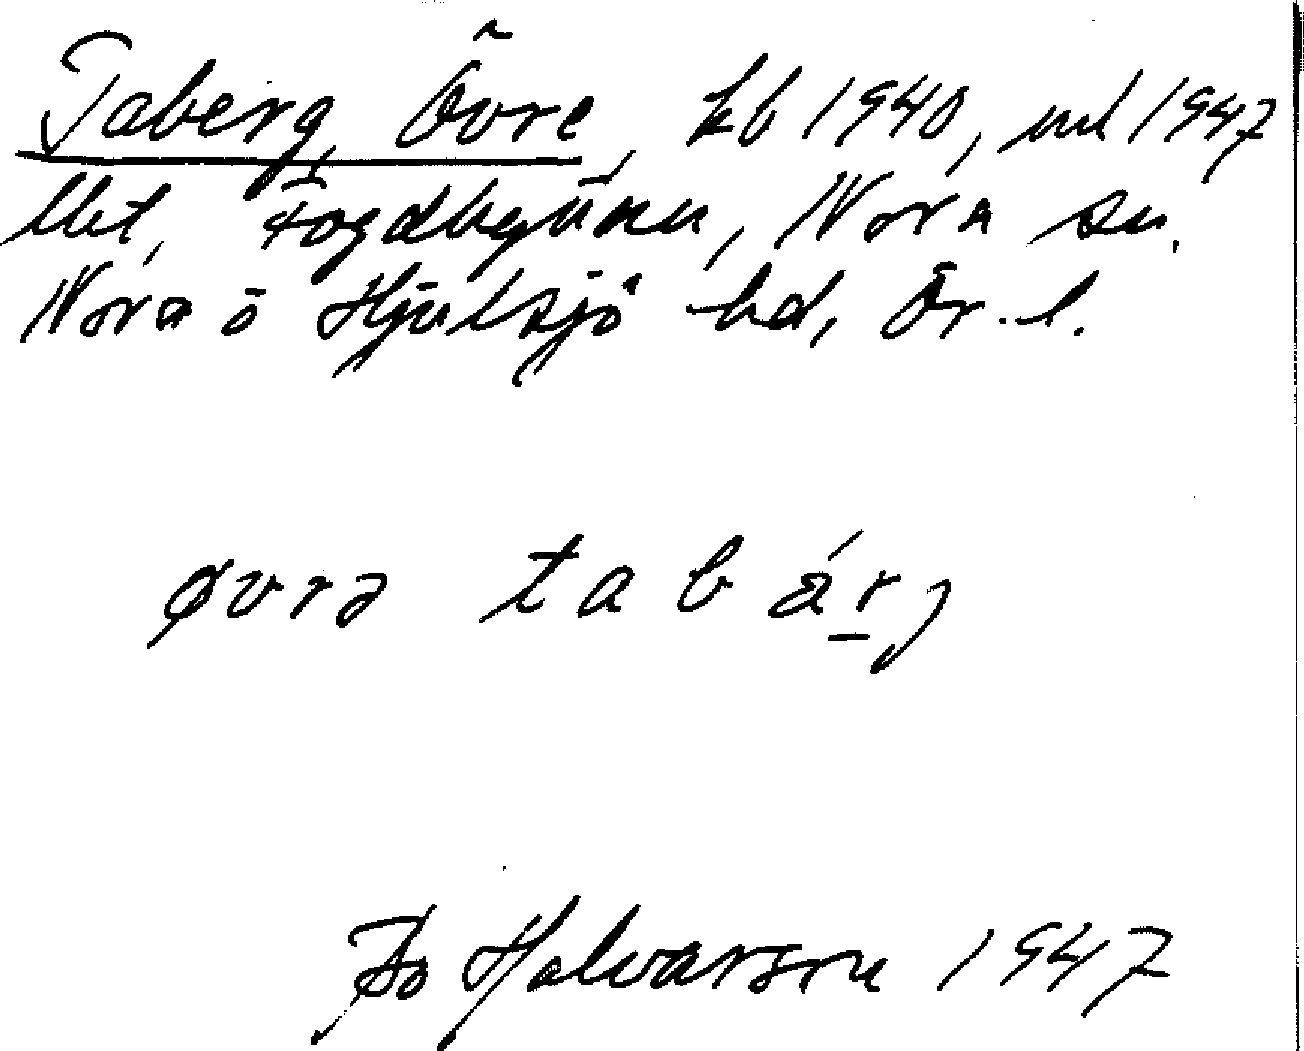 Taberg, Övre, kb 1940, ml 1947
Fogdhyttan, Nora sn.
Nora o Hjulsjö bd, Ör. l.
øvrə tabárj
Halvarson 1947